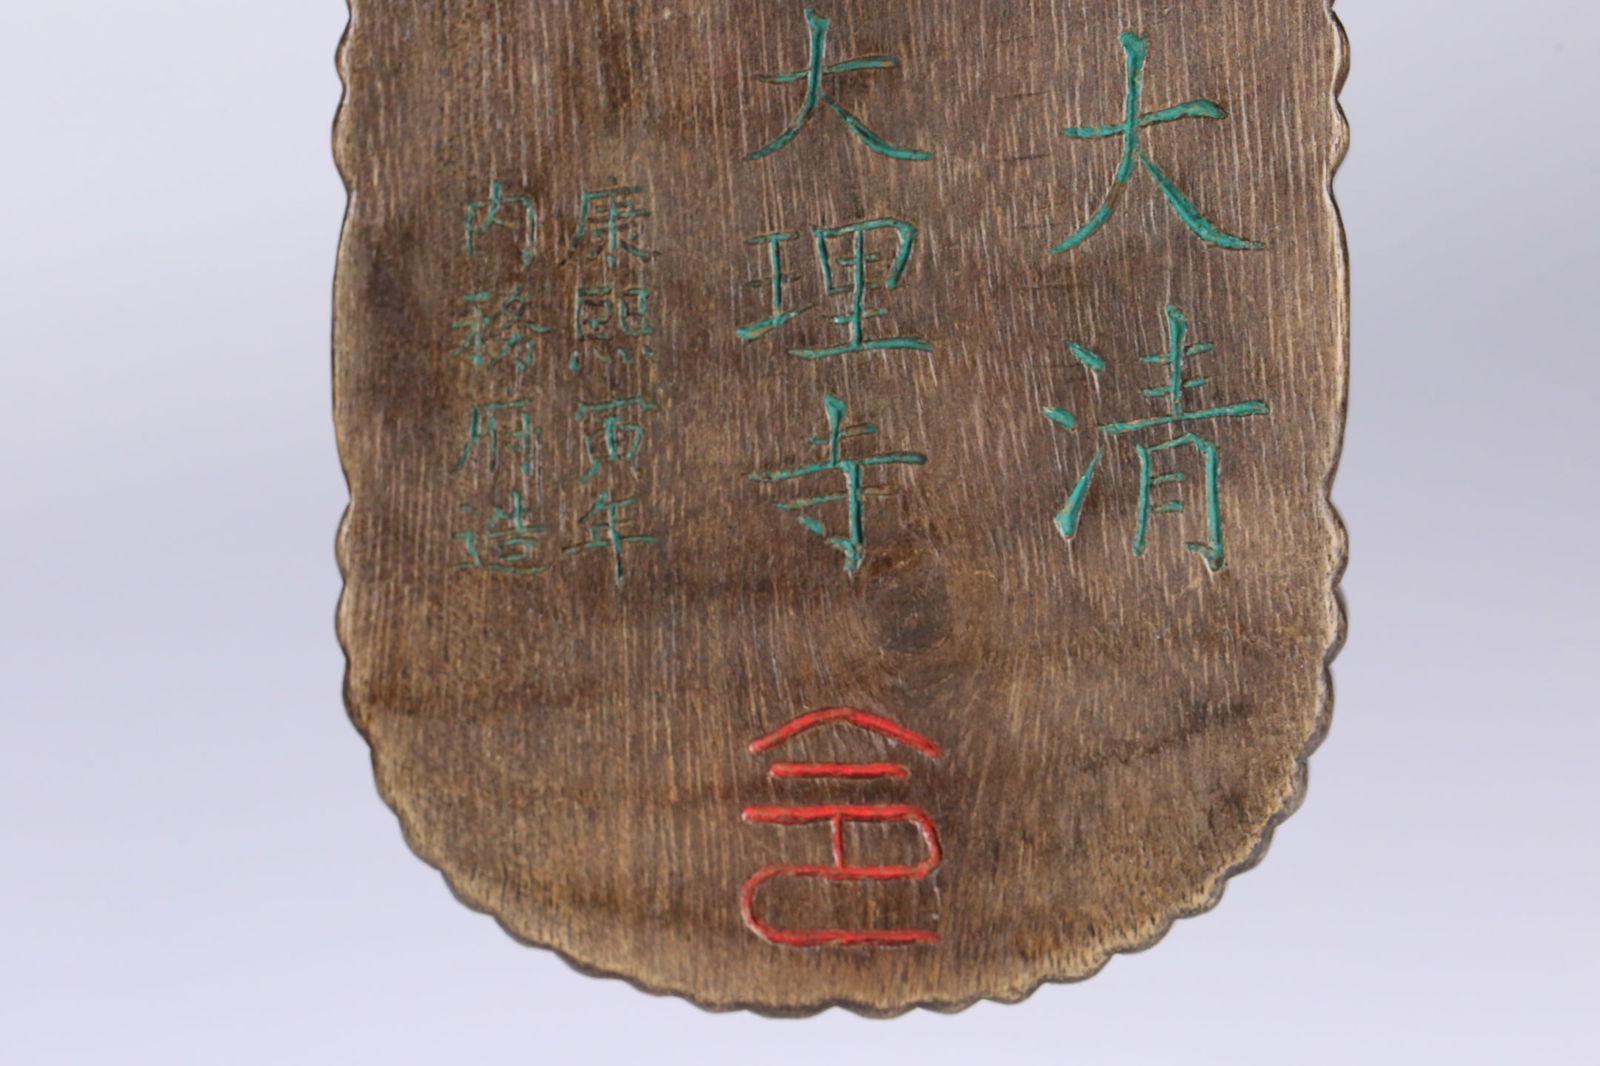 大清
大理寺
令
康熙寅年
内務府造